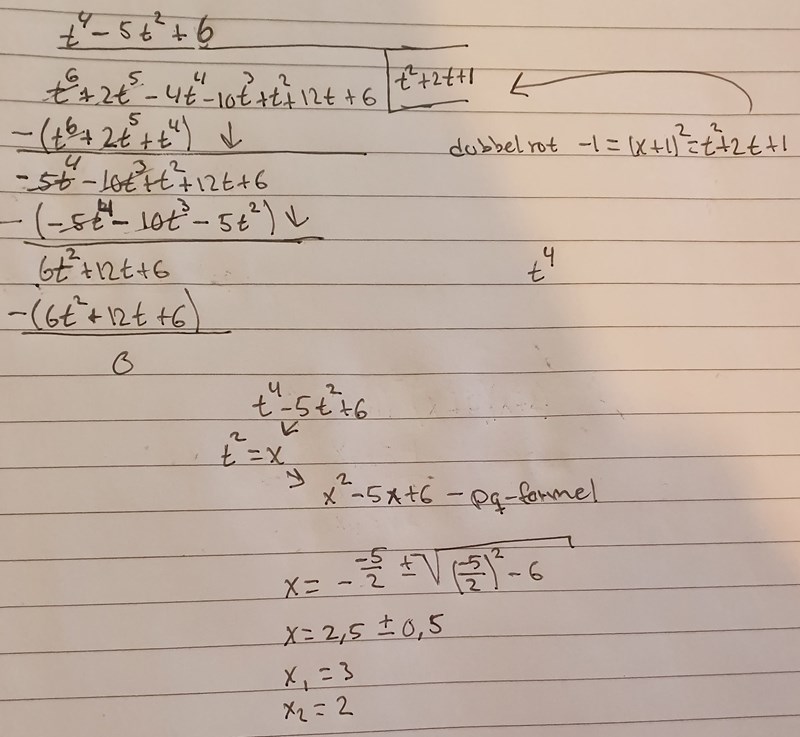 t⁴ - 5t² + 6
t⁶ + 2t⁵ - 4t⁴ - 10t³ + t² + 12t + 6 | t² + 2t + 1
-(t⁶ + 2t⁵ + t⁴) ↓
dubbelrot -1 = (x+1)² = t² + 2t + 1
-5t⁴ - 10t³ + t² + 12t + 6
-(-5t⁴ - 10t³ - 5t²) ↓
6t² + 12t + 6
t⁴
-(6t² + 12t + 6)
0
t⁴ - 5t² + 6
t² = x
x² - 5x + 6 - pq-formel
x = - -5/2 ± √((-5/2)² - 6)
x = 2,5 ± 0,5
x₁ = 3
x₂ = 2